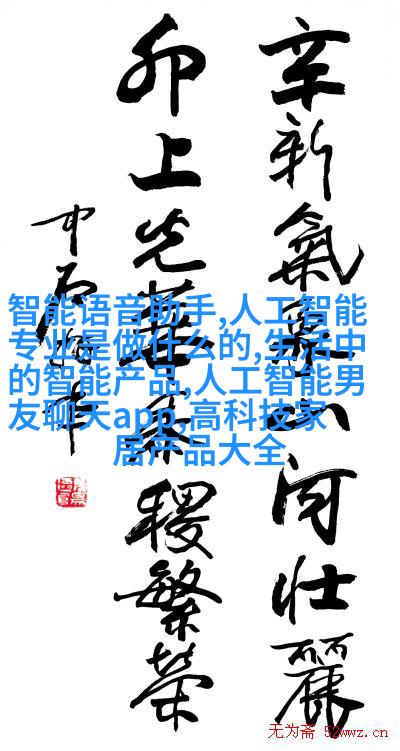 辛新氣象山河壯麗
卯上光華社稷繁榮
中石
智能语音助手,人工智能
专业是做什么的,生活中
的智能产品,人工智能男
友聊天app,高科技家
居产品大全
无为斋 52wwz.cn